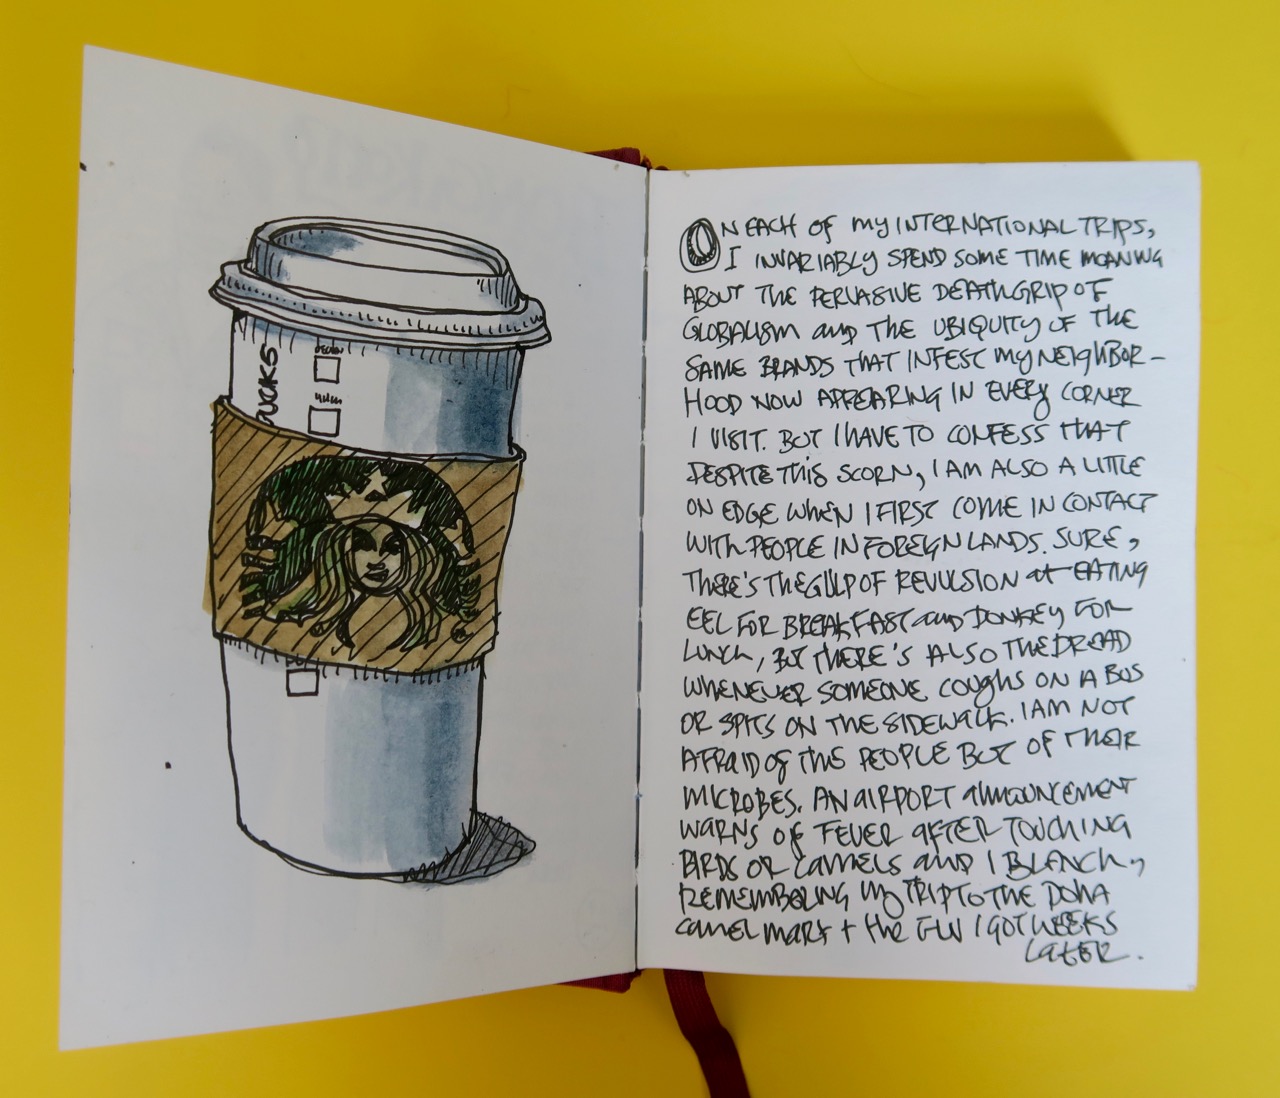 DECAF
UCKS
ON EACH OF MY INTERNATIONAL TRIPS,
I INVARIABLY SPEND SOME TIME MOANING
ABOUT THE PERVASIVE DEATHGRIP OF
GLOBALISM AND THE UBIQUITY OF THE
SAME BRANDS THAT INFEST MY NEIGHBOR-
HOOD NOW APPEARING IN EVERY CORNER
I VISIT. BUT I HAVE TO CONFESS THAT
DESPITE THIS SCORN, I AM ALSO A LITTLE
ON EDGE WHEN I FIRST COME IN CONTACT
WITH PEOPLE IN FOREIGN LANDS. SURE,
THERE'S THE GULP OF REVULSION at EATING
EEL FOR BREAKFAST AND DONKEY FOR
LUNCH, BUT THERE'S ALSO THE DREAD
WHENEVER SOMEONE COUGHS ON A BUS
OR SPITS ON THE SIDEWALK. I AM NOT
AFRAID OF THIS PEOPLE BUT OF THEIR
MICROBES. AN AIRPORT ANNOUNCEMENT
WARNS OF FEVER AFTER TOUCHING
BIRDS OR CAMELS AND I BLANCH,
REMEMBERING MY TRIP TO THE DOHA
CAMEL MART + the FLU I GOT WEEKS
LATER.